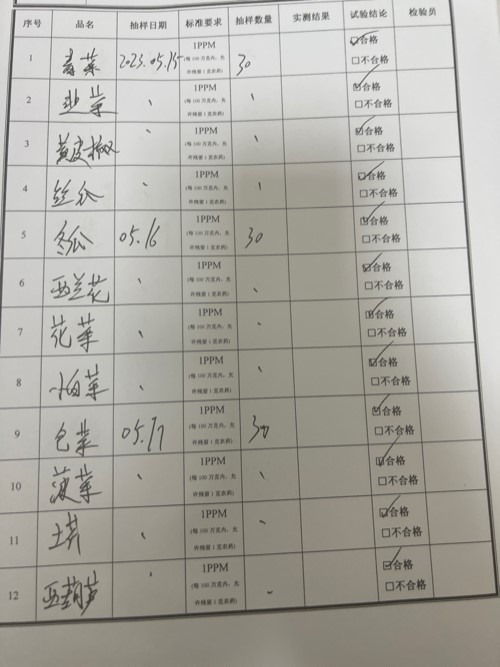 序号 品名 抽样日期 标准要求 抽样数量 实测结果 试验结论 检验员
1 青菜 2023.05.15 1PPM (每100万克内,允许残留1克农药) 30 ☑合格 □不合格
2 韭菜 、 1PPM (每100万克内,允许残留1克农药) 、 ☑合格 □不合格
3 黄皮椒 、 1PPM (每100万克内,允许残留1克农药) 、 ☑合格 □不合格
4 丝瓜 、 1PPM (每100万克内,允许残留1克农药) 、 ☑合格 □不合格
5 冬瓜 05.16 1PPM (每100万克内,允许残留1克农药) 30 ☑合格 □不合格
6 西兰花 、 1PPM (每100万克内,允许残留1克农药) 、 ☑合格 □不合格
7 花菜 、 1PPM (每100万克内,允许残留1克农药) 、 ☑合格 □不合格
8 小白菜 、 1PPM (每100万克内,允许残留1克农药) 、 ☑合格 □不合格
9 包菜 05.17 1PPM (每100万克内,允许残留1克农药) 30 ☑合格 □不合格
10 菠菜 、 1PPM (每100万克内,允许残留1克农药) 、 ☑合格 □不合格
11 土芹 、 1PPM (每100万克内,允许残留1克农药) 、 ☑合格 □不合格
12 西葫芦 、 1PPM (每100万克内,允许残留1克农药) 、 ☑合格 □不合格